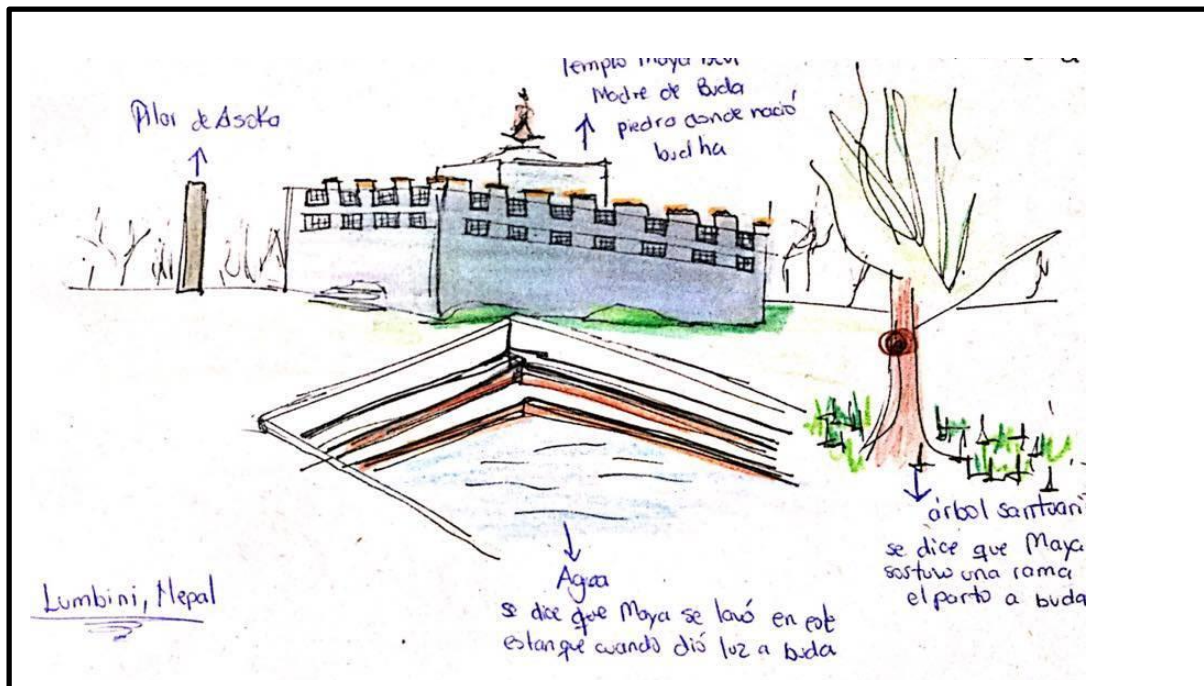 Templo Maya
Madre de Buda
piedra donde nació
budha
Pilar de Asoka
árbol santuari
se dice que Maya
sostuvo una rama
el parto a buda
Agua
se dice que Maya se lavó en este
estanque cuando dió luz a buda
Lumbini, Nepal